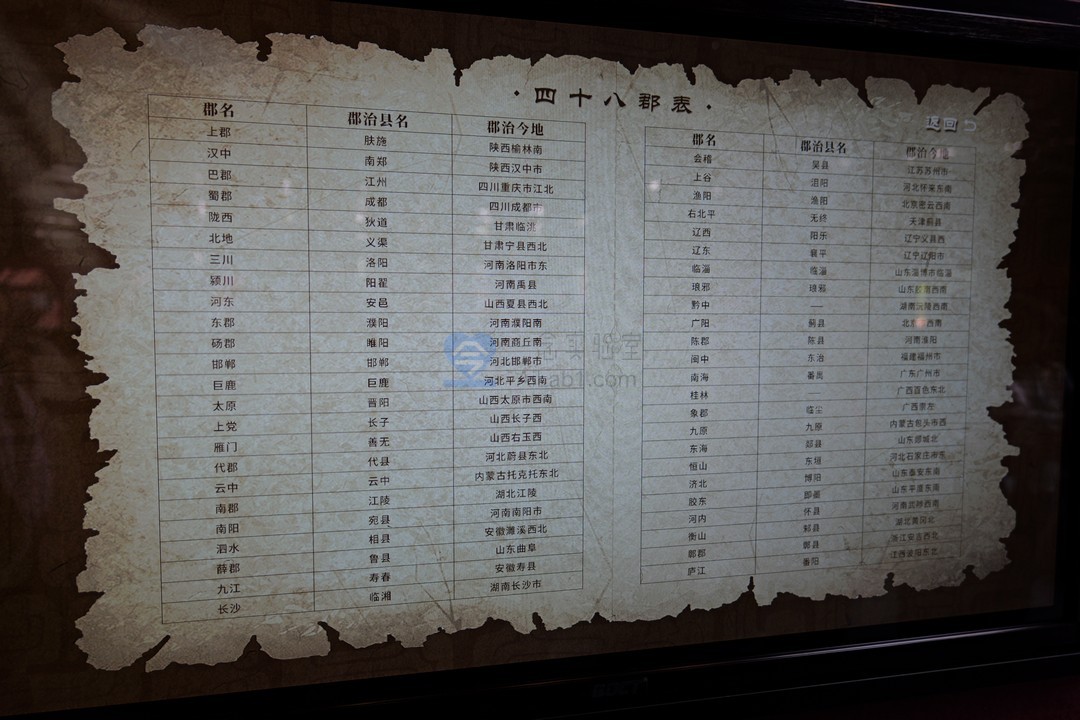 ·四十八郡表·
返回
郡名 郡治县名 郡治今地
上郡 肤施 陕西榆林南
汉中 南郑 陕西汉中市
巴郡 江州 四川重庆市江北
蜀郡 成都 四川成都市
陇西 狄道 甘肃临洮
北地 义渠 甘肃宁县西北
三川 洛阳 河南洛阳市东
颍川 阳翟 河南禹县
河东 安邑 山西夏县西北
东郡 濮阳 河南濮阳南
砀郡 睢阳 河南商丘南
邯郸 邯郸 河北邯郸市
巨鹿 巨鹿 河北平乡西南
太原 晋阳 山西太原市西南
上党 长子 山西长子西
雁门 善无 山西右玉西
代郡 代县 河北蔚县东北
云中 云中 内蒙古托克托东北
南郡 江陵 湖北江陵
南阳 宛县 河南南阳市
泗水 相县 安徽濉溪西北
薛郡 鲁县 山东曲阜
九江 寿春 安徽寿县
长沙 临湘 湖南长沙市
郡名 郡治县名 郡治今地
会稽 吴县 江苏苏州市
上谷 沮阳 河北怀来东南
渔阳 渔阳 北京密云西南
右北平 无终 天津蓟县
辽西 阳乐 辽宁义县西
辽东 襄平 辽宁辽阳市
临淄 临淄 山东淄博市临淄
琅邪 琅邪 山东胶南西南
黔中 —— 湖南沅陵西南
广阳 蓟县 北京西南
陈郡 陈县 河南淮阳
闽中 东冶 福建福州市
南海 番禺 广东广州市
桂林 —— 广西百色东北
象郡 临尘 广西崇左
九原 九原 内蒙古包头市西
东海 郯县 山东郯城北
恒山 东垣 河北石家庄市东
济北 博阳 山东泰安东南
胶东 即墨 山东平度东南
河内 怀县 河南武陟西南
衡山 邾县 湖北黄冈北
鄣郡 鄣县 浙江安吉西北
庐江 番阳 江西波阳东北